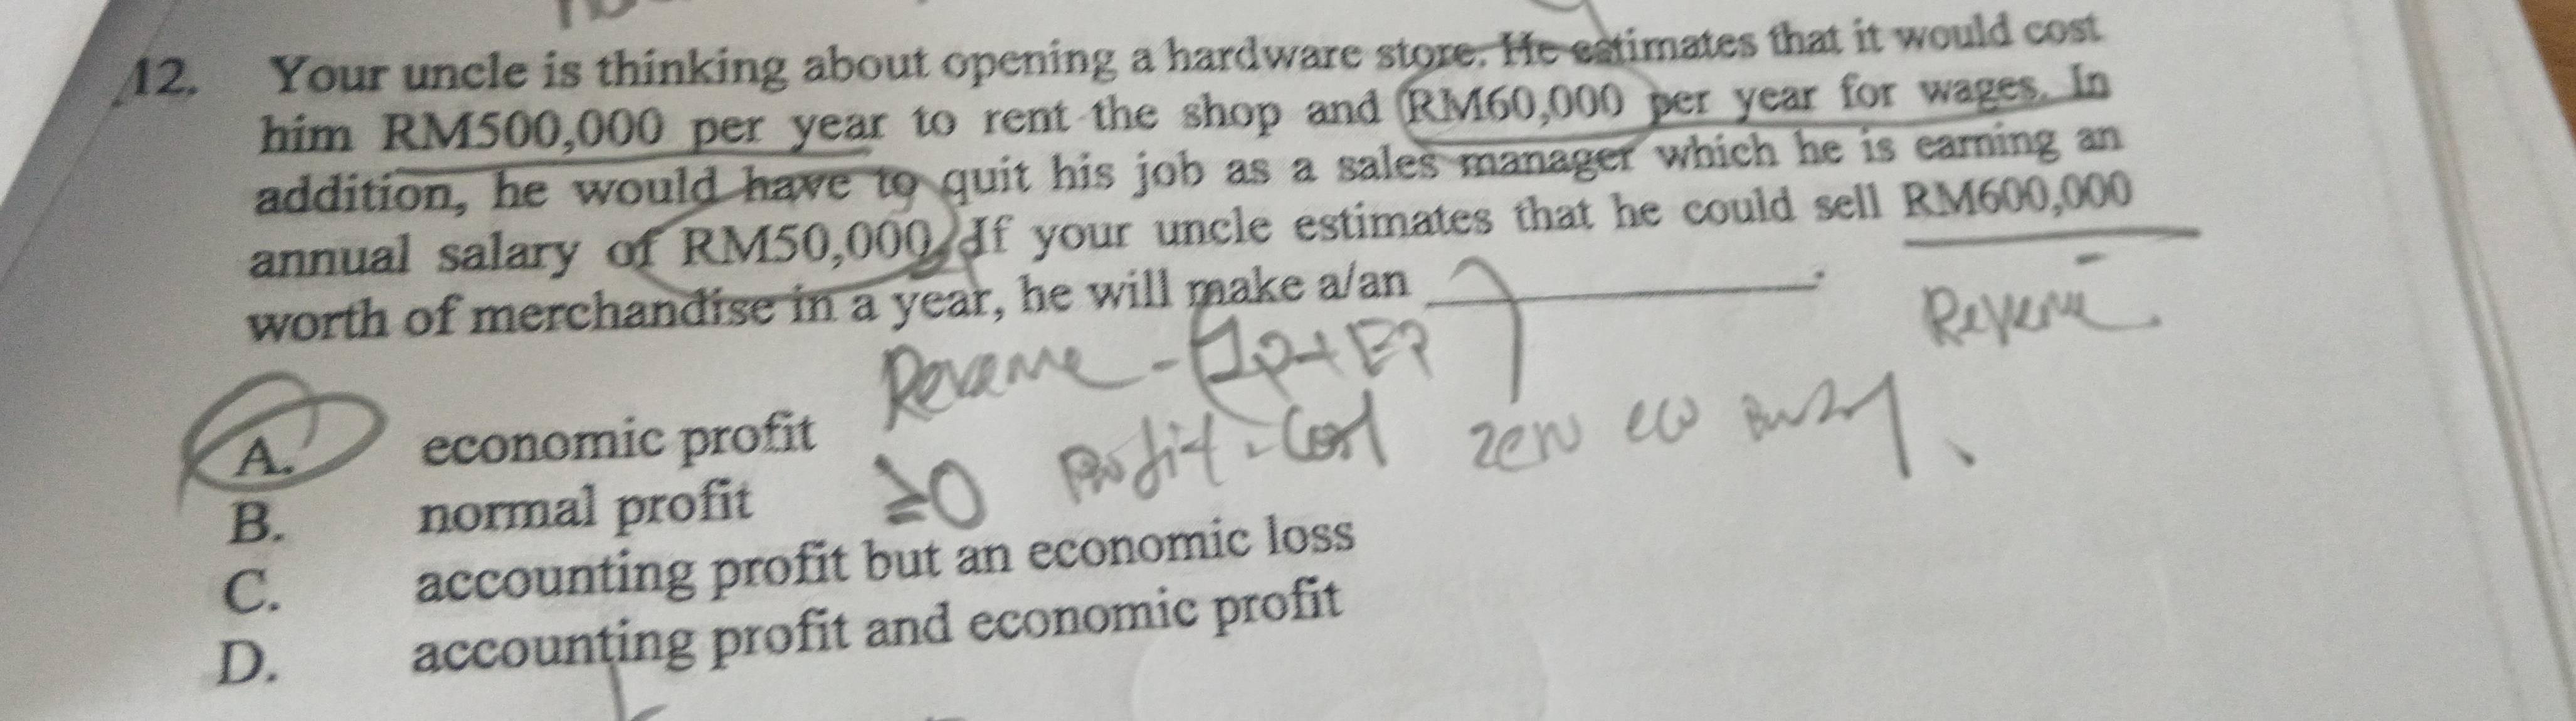 12. Your uncle is thinking about opening a hardware store. He estimates that it would cost
him RM500,000 per year to rent the shop and RM60,000 per year for wages. In
addition, he would have to quit his job as a sales manager which he is earning an
annual salary of RM50,000. If your uncle estimates that he could sell RM600,000
worth of merchandise in a year, he will make a/an ____________.
Revenue
Revenue - (
A. economic profit
Profit - Cost zero eco
B. normal profit
≥0
C. accounting profit but an economic loss
D. accounting profit and economic profit